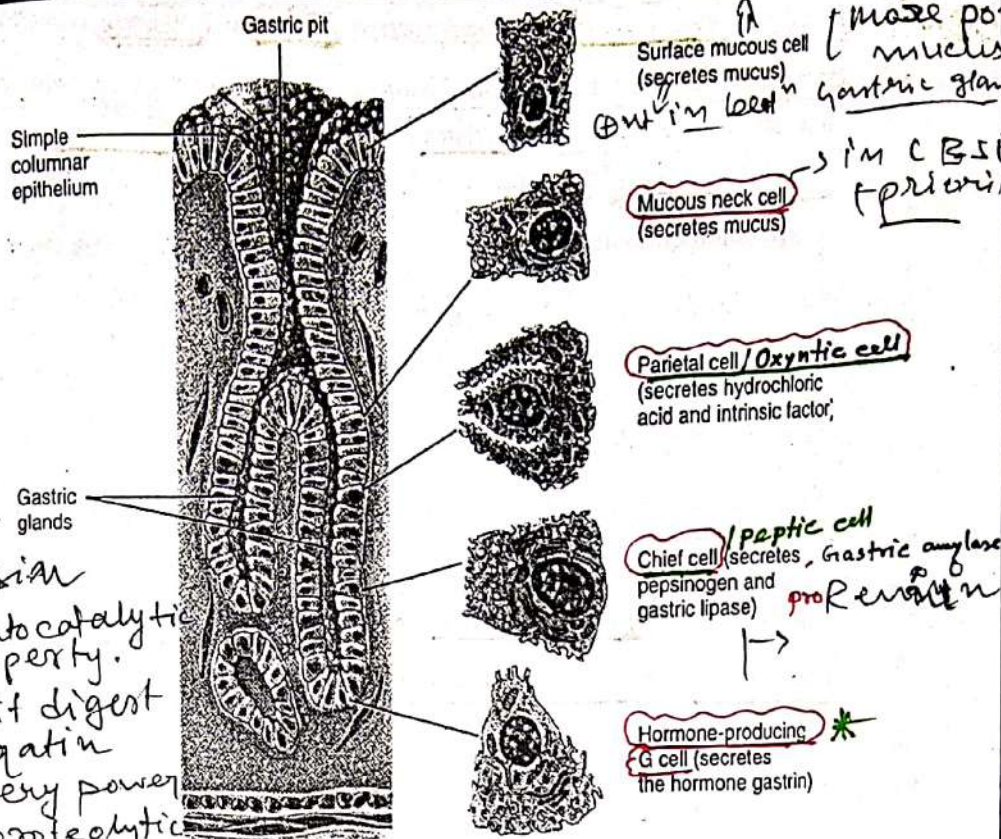 Gastric pit
Simple
columnar
epithelium
Gastric
glands
Surface mucous cell
(secretes mucus)
more
Gastric
Mucous neck cell
(secretes mucus)
in CBSE
Parietal cell/Oxyntic cell
(secretes hydrochloric
acid and intrinsic factor,
Chief cell (secretes
pepsinogen and
gastric lipase)
/peptic cell
, Gastric amylase
pro
Hormone-producing
G cell (secretes
the hormone gastrin)
tocatalytic
perty.
digest
ery power
proteolytic